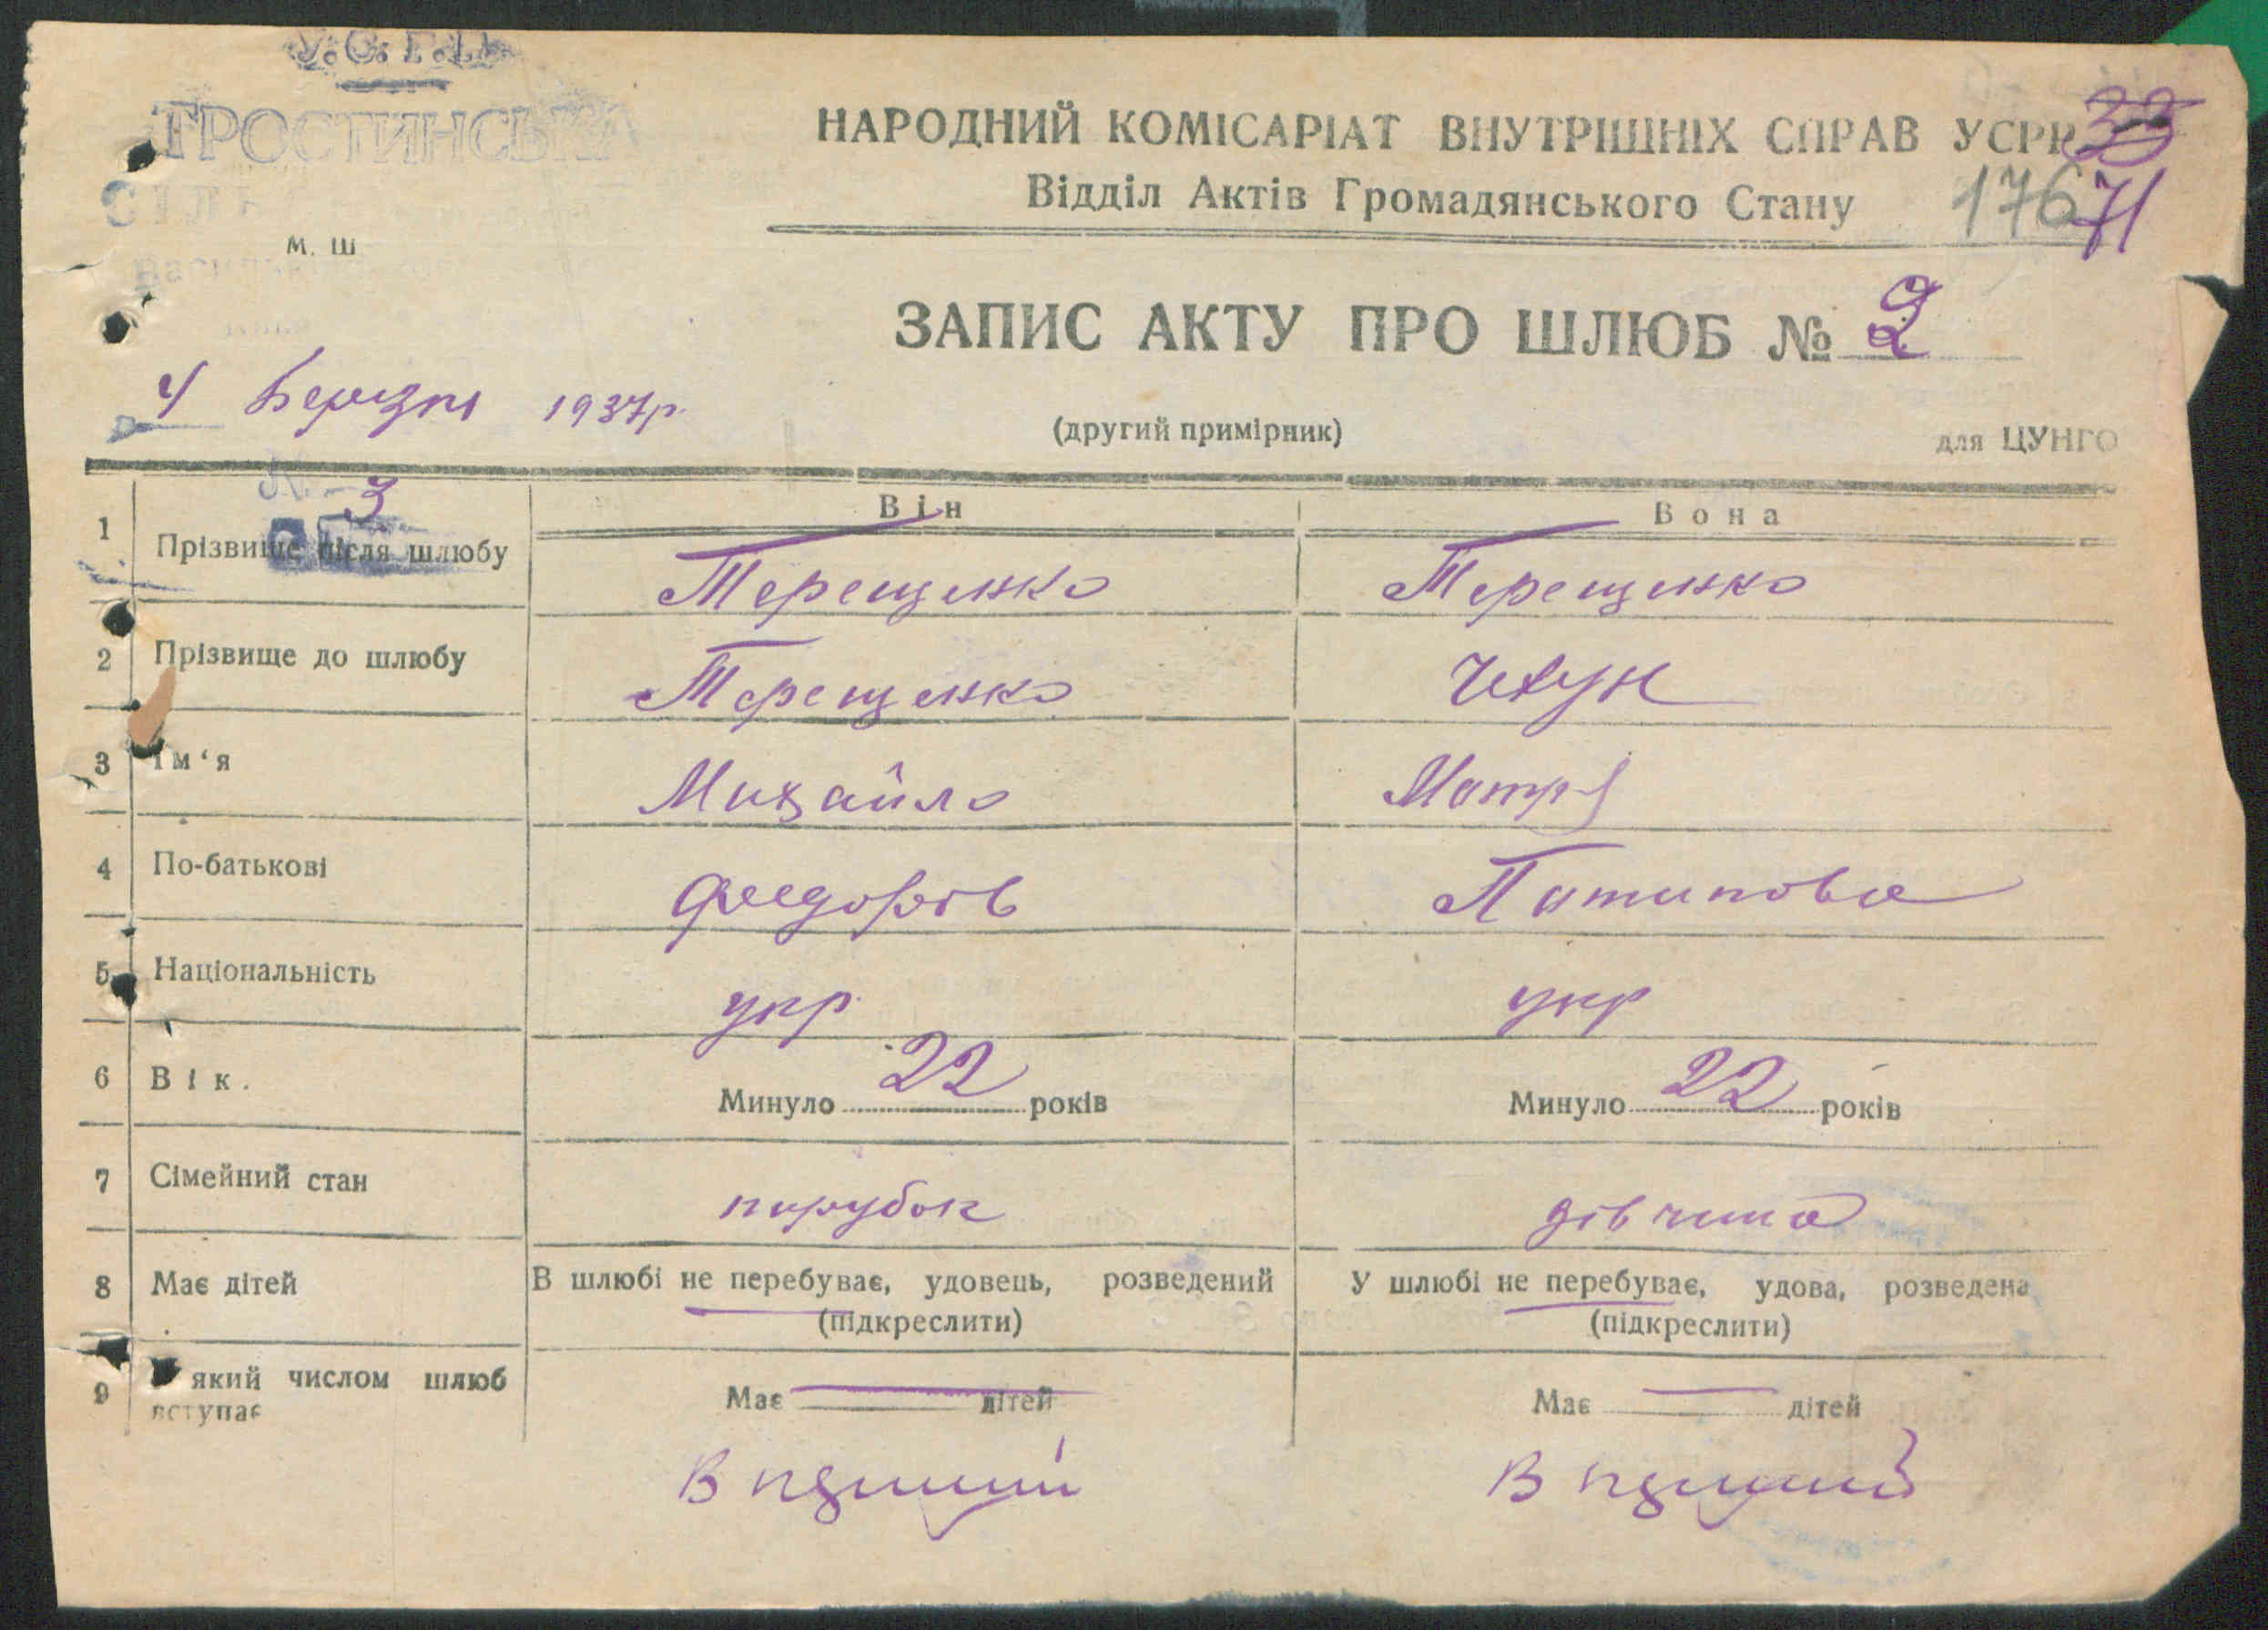 У.С.Р.Р.
ТРОСТИНСЬКА
СІЛЬ
М. Ш
НАРОДНИЙ КОМІСАРІАТ ВНУТРІШНІХ СПРАВ УСРР
33
Відділ Актів Громадянського Стану
176 71
ЗАПИС АКТУ ПРО ШЛЮБ № 2
4 Березня 1937р.
(другий примірник)
для ЦУНГО
№ 3
Він
Вона
1 Прізвище після шлюбу
Терещенко
Терещенко
2 Прізвище до шлюбу
Терещенко
Чехун
3 Ім‘я
Михайло
Мотря
4 По-батькові
Феедоров
Потипова
5 Національність
укр
укр
6 Вік.
Минуло 22 років
Минуло 22 років
7 Сімейний стан
парубок
дівчина
8 Має дітей
В шлюбі не перебуває, удовець, розведений
(підкреслити)
У шлюбі не перебуває, удова, розведена
(підкреслити)
9 який числом шлюб
вступає
Має дітей
Має дітей
В
В